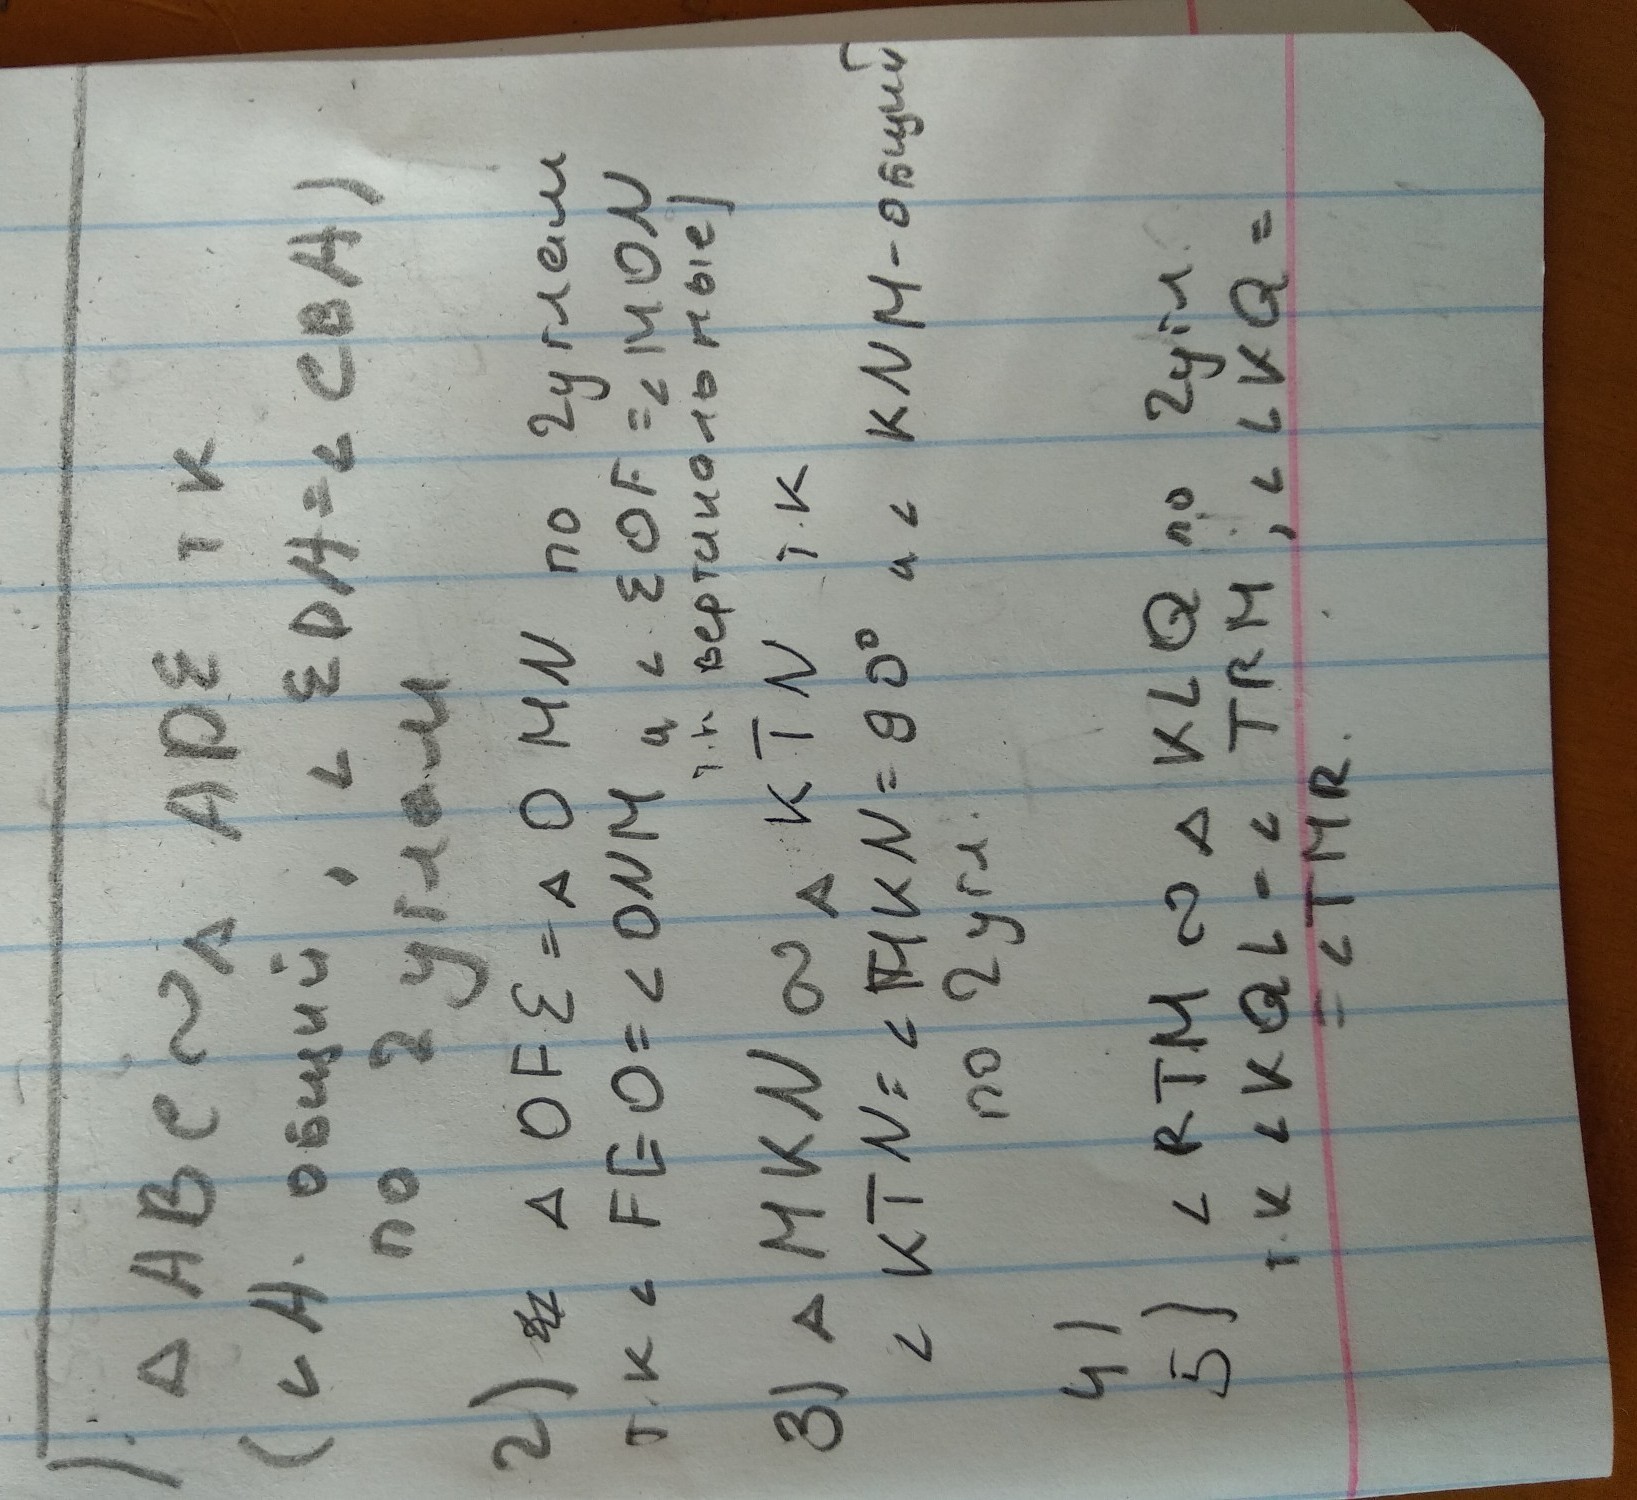 1. △ ABC ∾ △ ADE т к
(∠ A. общий, ∠ EDA = ∠ CBA)
по 2 углам
2) △ OFE = △ OMN по 2 углам
т.к ∠ FEO = ∠ ONM и ∠ EOF = ∠ MON
т.к вертикольные)
3) △ MKN ∾ △ KTN т.к
∠ KTN = ∠ MKN = 90° и ∠ KNM - общий
по 2 угл.
4)
5) ∠ RTM ∾ △ KLQ по 2 угл.
т.к ∠ KQL = ∠ TRM, ∠ LKQ =
= ∠ TMR.